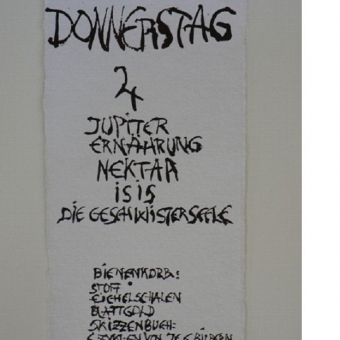 DONNERSTAG
♃
JUPITER
ERNÄHRUNG
NEKTAR
ISIS
DIE GESCHWISTERSEELE
BIENENKORB:
STOFF
EICHELSCHALEN
BLATTGOLD
SKIZZENBUCH: